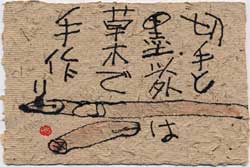 切手と
墨以外は
草木で
手作